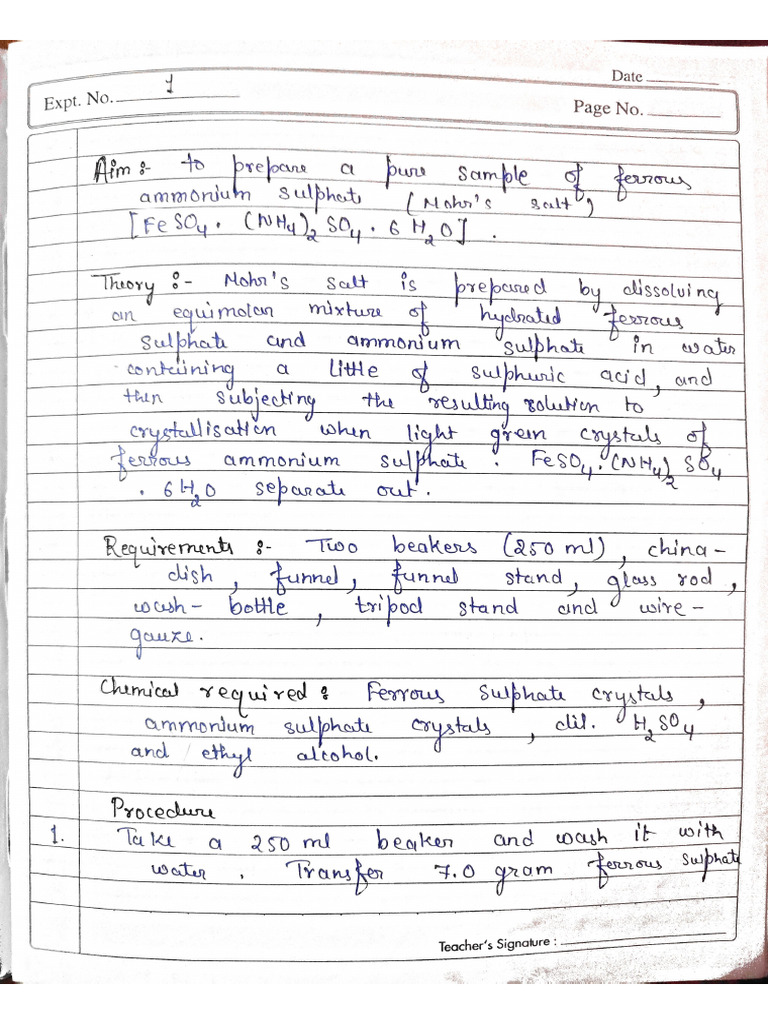 Date
Expt. No. 1
Page No.
Aim :- to prepare a pure sample of ferrous
ammonium sulphate (Mohr's salt)
[FeSO4 . (NH4)2 SO4 . 6 H2O] .
Theory :- Mohr's salt is prepared by dissolving
an equimolar mixture of hydrated ferrous
sulphate and ammonium sulphate in water
containing a little of sulphuric acid, and
then subjecting the resulting solution to
crystallisation when light green crystals of
ferrous ammonium sulphate . FeSO4 . (NH4)2 SO4
. 6H2O separate out .
Requirements :- Two beakers (250 ml) , china-
dish , funnel , funnel stand , glass rod ,
wash- bottle , tripod stand and wire-
gauze .
Chemical required : Ferrous Sulphate crystals ,
ammonium sulphate crystals , dil. H2SO4
and ethyl alcohol .
Procedure
1. Take a 250 ml beaker and wash it with
water . Transfer 7.0 gram ferrous sulphate
Teacher's Signature :